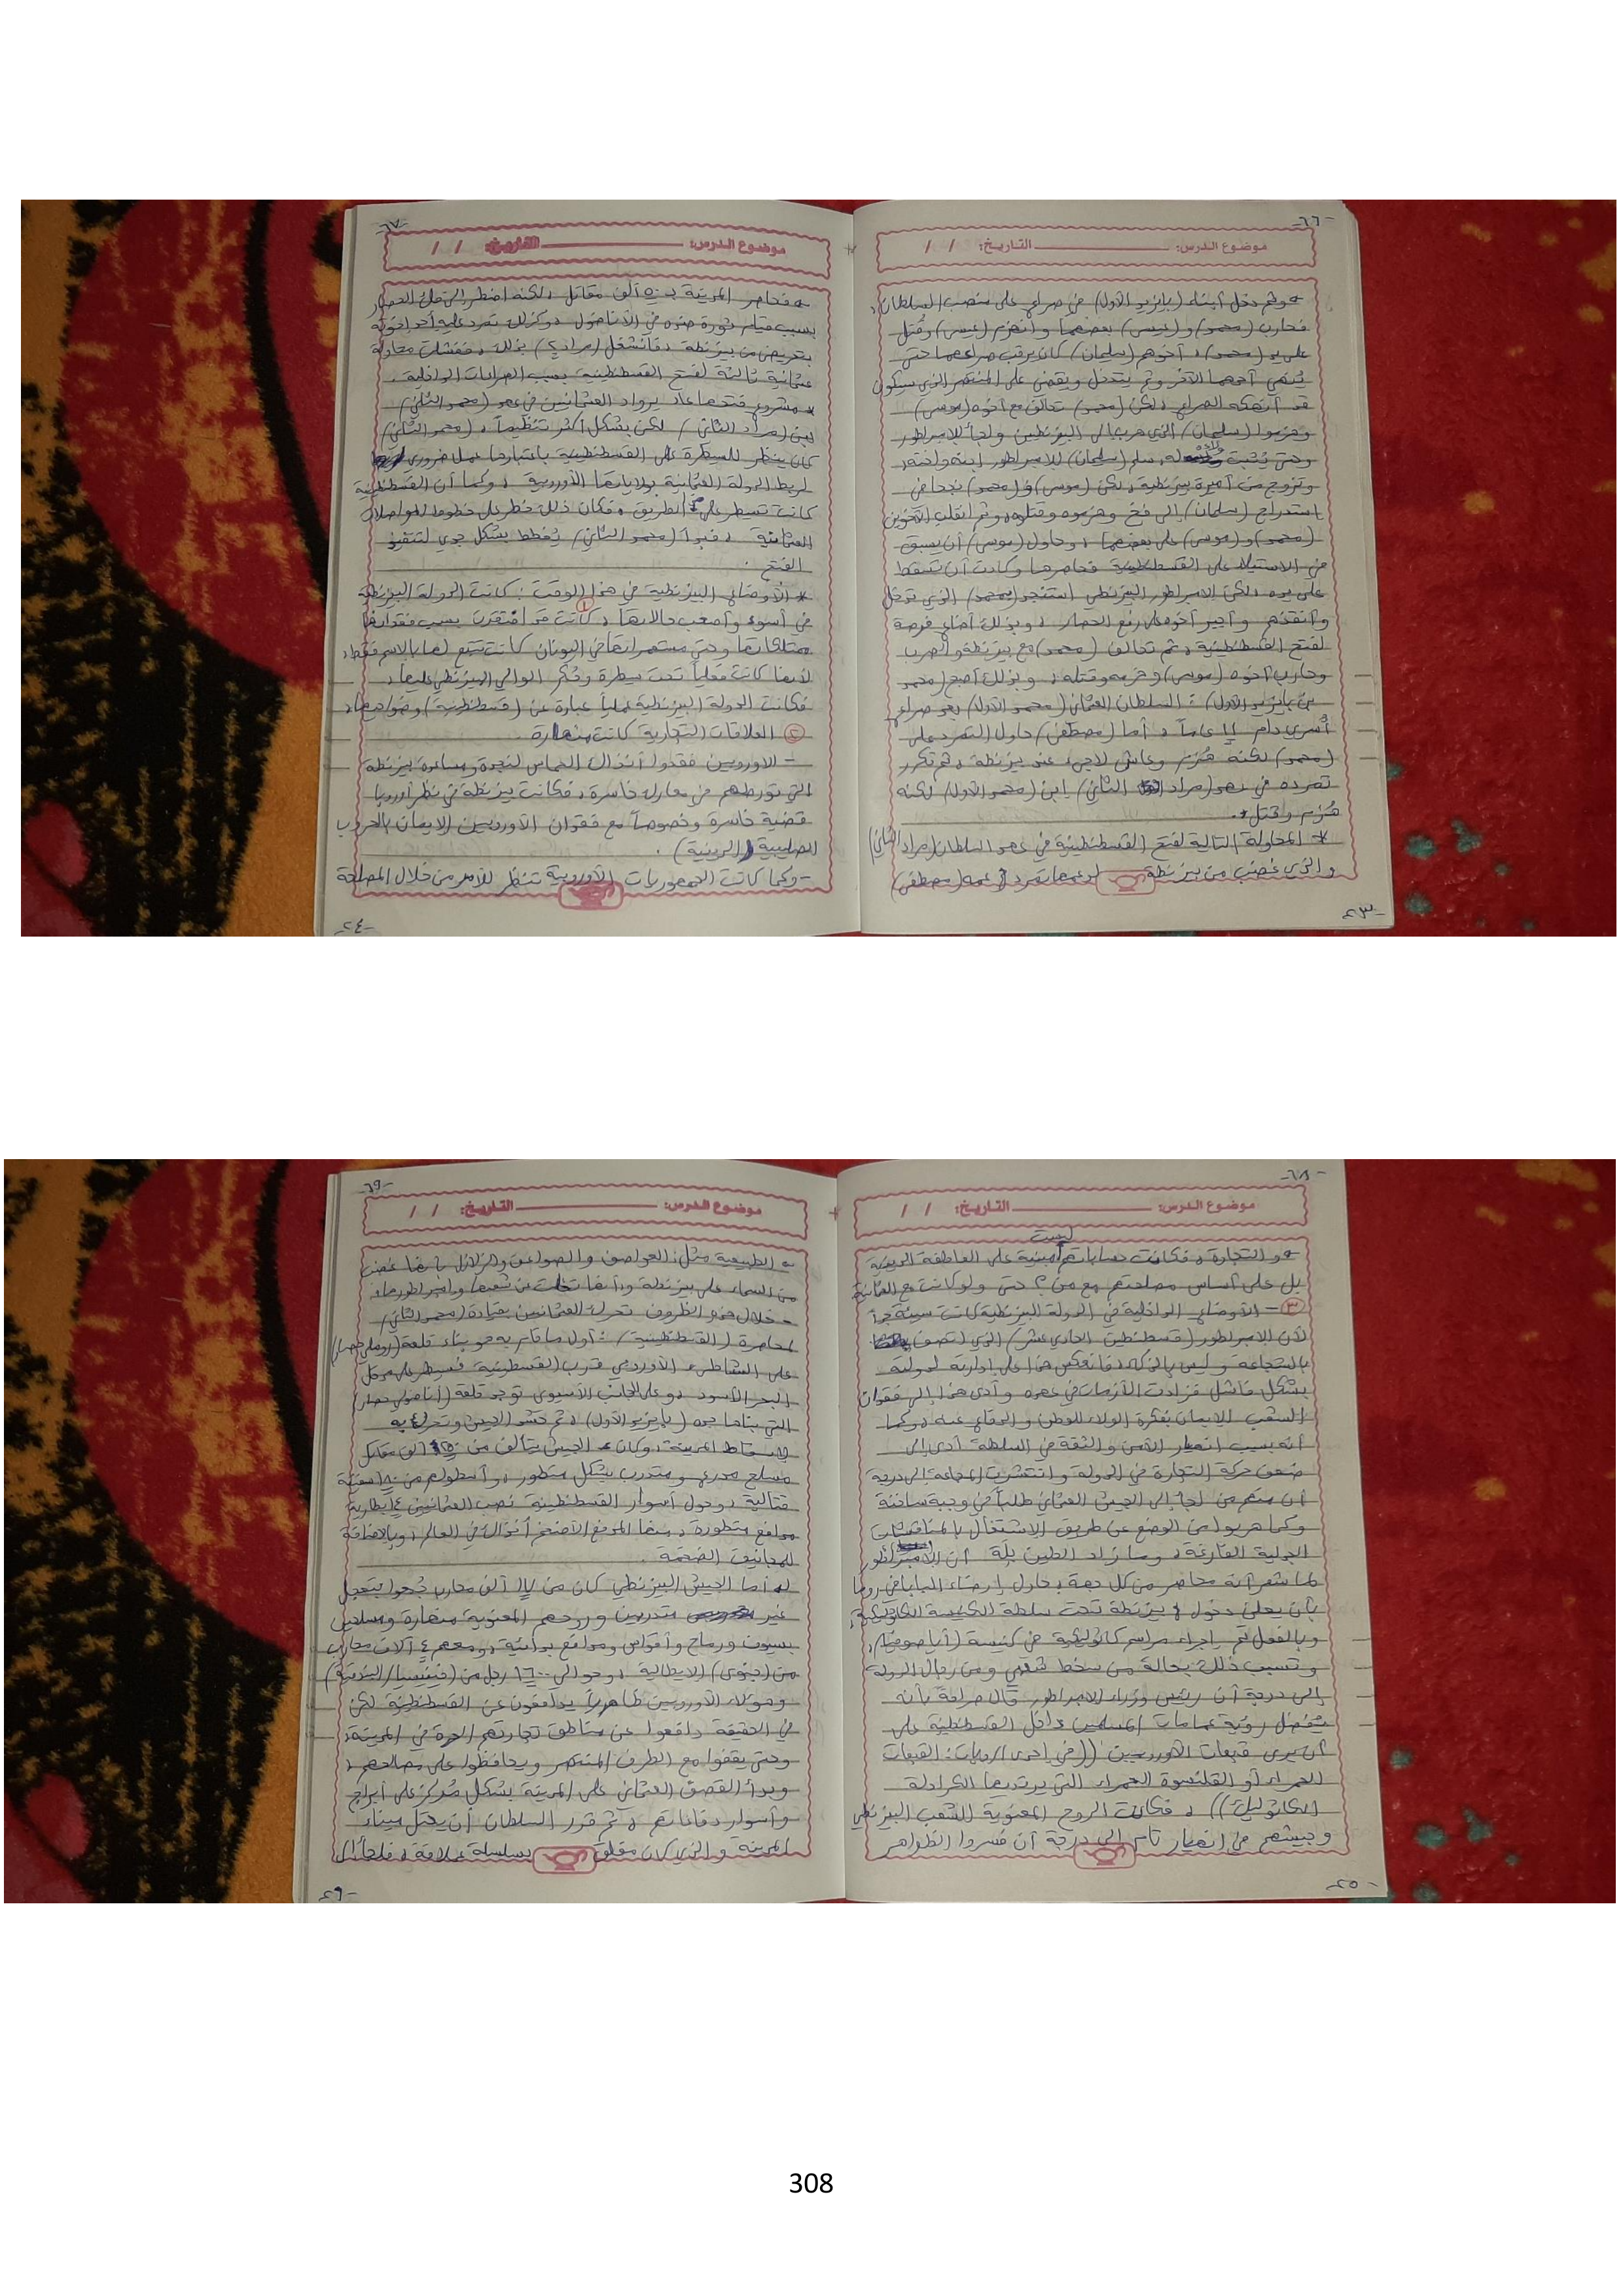 -٦٦-
موضوع الدرس: التاريخ: / /
وثم دخل أبناء (بايزيد الأول) في صراع على منصب السلطان،
فحارب (محمد) و(عيسى) بعضهما وانهزم (عيسى) وقُتل
على يد (محمد)، أخوهم (سليمان) كان يرقب صراعهما حتى
يُنهي أحدهما الآخر وثم يتدخل ويقضي على المنتصر الذي سيكون
قد أنهكه الصراع، لكن (محمد) تحالف مع أخوه (موسى)
وهزموا (سليمان) الذي هرب إلى البيزنطيين ولجأ للإمبراطور
وحتى يُثبت ولائه له، سلم (سليمان) للإمبراطور ابنه وأخته،
وتزوج من أميرة بيزنطية، لكن (موسى) و(محمد) نجحا في
استدراج (سلمان) إلى فخ وهزموه وقتلوه، وثم انقلب الأخوين
(محمد) و(موسى) على بعضهما، وحاول (موسى) أن يسبق
في الاستيلاء على القسطنطينية فحاصرها وكادت أن تسقط
على يده، لكن الإمبراطور البيزنطي استنجد (بمحمد) الذي تدخل
وأنقذهم وأجبر أخوه على رفع الحصار، وبذلك أضاع فرصة
لفتح القسطنطينية، ثم تحالف (محمد) مع بيزنطة والصرب
وحارب أخوه (موسى) وهزمه وقتله، وبذلك أصبح (محمد
بن بايزيد الأول): السلطان العثماني (محمد الأول) بعد صراع
أسري دام ١١ عاماً، أما (مصطفى) حاول التمرد على
(محمد) لكنه هُزم وعاش لاجئ عند بيزنطة، ثم تكرر
تمرده في عهد (مراد الثاني) ابن (محمد الأول) لكنه
هُزم وقتل.
* المحاولة الثالثة لفتح القسطنطينية في عهد السلطان (مراد الثاني)
والذي غضب من بيزنطة لدعمها تمرد عمه (مصطفى)
-٢٣-
-٦٧-
موضوع الدرس: التاريخ: / /
فحاصر المدينة بـ ٥٠ ألف مقاتل، لكنه اضطر إلى فك الحصار
بسبب قيام ثورة ضده في الأناضول، وكذلك تمرد عليه أحد أخوته
بتحريض من بيزنطة، فانشغل (مراد٢) بذلك، ففشلت محاولة
عثمانية ثالثة لفتح القسطنطينية بسبب الصراعات الداخلية،
* مشروع فتحها عاد يرواد العثمانيين في عهد (محمد الثاني)
ابن (مراد الثاني) لكن بشكل أكثر تنظيماً، (محمد الثاني)
كان ينظر للسيطرة على القسطنطينية باعتبارها عمل ضروري
لربط الدولة العثمانية بولاياتها الأوروبية، وكما أن القسطنطينية
كانت تسيطر على الطريق، فكان ذلك خطر على خطوط المواصلات
العثمانية، فبدأ (محمد الثاني) يُخطط بشكل جدي لتنفيذ
الفتح.
* الأوضاع البيزنطية في هذا الوقت: كانت الدولة البيزنطية
في أسوء وأصعب حالاتها، ① كانت قد افتقرت بسبب فقدانها
ممتلكاتها وحتى مستعمراتها في اليونان كانت تتبع لها بالاسم فقط،
لأنها كانت فعلياً تحت سيطرة وحُكم الوالي البيزنطي عليها،
فكانت الدولة البيزنطية عملياً عبارة عن (قسطنطينية) وضواحيها،
② العلاقات التجارية كانت منهارة.
- الأوروبيين فقدوا آنذاك الحماس لنجدة ومساعدة بيزنطة
التي تورطهم في معارك خاسرة، فكانت بيزنطة في نظر أوروبا
قضية خاسرة وخصوصاً مع فقدان الأوروبيين الإيمان بالحروب
الصليبية (الدينية).
- وكما كانت الجمهوريات الأوروبية تنظر للأمر من خلال المصلحة
-٢٤-
-٦٨-
موضوع الدرس: التاريخ: / /
والتجارة، فكانت حساباتهم ليست مبنية على العاطفة الدينية
بل على أساس مصلحتهم مع من؟ حتى ولو كانت مع العثمانية
③ - الأوضاع الداخلية في الدولة البيزنطية كانت سيئة جداً
لأن الإمبراطور (قسطنطين الحادي عشر) الذي اتصف
بالشجاعة وليس بالذكاء، فانعكس هذا على إدارته لدولته
بشكل فاشل فزادت الأزمات في عهده وأدى هذا إلى فقدان
الشعب الإيمان بفكرة الولاء للوطن والدفاع عنه، وكما
أنه بسبب انهيار الأمن والثقة في السلطة أدى إلى
ضعف حركة التجارة في الدولة وانتشرت المجاعة إلى درجة
أن منهم من لجأ إلى الجيش العثماني طلباً في وجبة ساخنة
وكما هربوا من الوضع عن طريق الاشتغال بالمناقشات
الجدلية الفارغة، وما زاد الطين بلة أن الإمبراطور
لما شعر أنه محاصر من كل جهة، حاول إرضاء البابا في روما
بأن يعلن دخول بيزنطة تحت سلطة الكنيسة الكاثوليكية،
وبالفعل تم إجراء مراسم كاثوليكية في كنيسة (أيا صوفيا)،
وتسبب ذلك بحالة من سخط شعبي ومن رجال الدولة
إلى درجة أن رئيس وزراء الإمبراطور قال صراحة بأنه
يُفضل رؤية عمامات المسلمين داخل القسطنطينية على
أن يرى قبعات الأوروبيين ((في إحدى الروايات: القبعات
الحمراء أو القلنسوة الحمراء التي يرتديها الكرادلة
الكاثوليك))، فكانت الروح المعنوية للشعب البيزنطي
وجيشهم في انهيار تام إلى درجة أن فسروا الظواهر
-٢٥-
-٦٩-
موضوع الدرس: التاريخ: / /
الطبيعية مثل: العواصف والصواعق والزلازل بأنها غضب
من السماء على بيزنطة وأنها تخلت عن شعبها وإمبراطورها،
- خلال هذه الظروف تحرك العثمانيين بقيادة (محمد الثاني)
لمحاصرة (القسطنطينية): أول ما قام به هو بناء قلعة (روملي حصار)
على الشاطئ الأوروبي قرب القسطنطينية فسيطر على مدخل
البحر الأسود، وعلى الجانب الآسيوي توجد قلعة (أناضولي حصار)
التي بناها جده (بايزيد الأول)، ثم حشد الجيش وتحرك به
لإسقاط المدينة، وكان الجيش يتألف من ألف مقاتل
مسلح مدرع ومتدرب بشكل متطور، وأسطولهم من ١٨٠ سفينة
قتالية، وحول أسوار القسطنطينية نصب العثمانيين ١٤ بطارية
مدافع متطورة، منها المدفع الأضخم آنذاك في العالم، وبالإضافة
للمجانيق الضخمة.
أما الجيش البيزنطي كان من ألف محارب جُمعوا بتعجل
غير متدربين وروحهم المعنوية منهارة ومسلحين
بسيوف ورماح وأقواس ومدافع بدائية، ومعهم ٤ آلاف محارب
من (جنوى) الإيطالية، وحوالي ١٦٠٠ رجل من (فينيسيا/البندقية)
وهؤلاء الأوروبيين ظاهرياً يدافعون عن القسطنطينية لكن
في الحقيقة دافعوا عن مناطق تجارتهم الحرة في المدينة،
وحتى يقفوا مع الطرف المنتصر ويحافظوا على مصالحهم،
وبدأ القصف العثماني على المدينة بشكل مُركز على أبراج
وأسوار دفاعاتهم، ثم قرر السلطان أن يحتل ميناء
المدينة والذي كان مغلق بسلسلة عملاقة، فلجأ إلى
-٢٦-
308